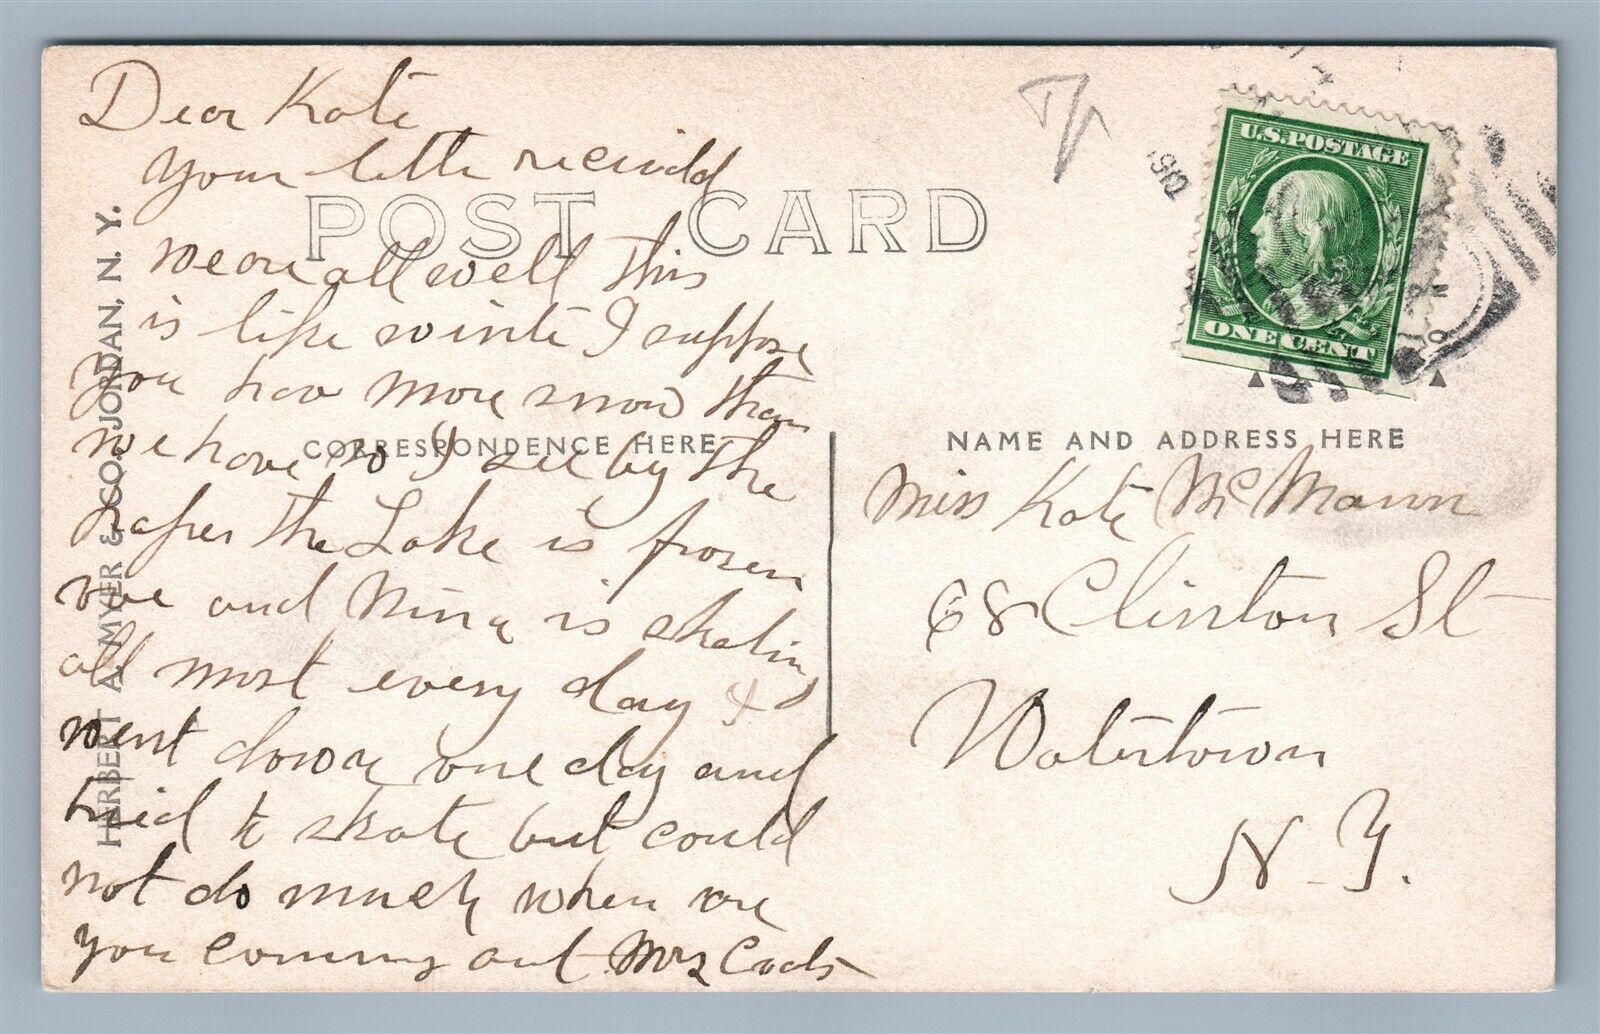 Dear Kate
your lette recievdd
POST CARD
we are all well this
is like winte I suppose
you hav more snow than
we have so I see by the
CORRESPONDENCE HERE
paper the Lake is frozen
and Nina is skating
all most every day I
went down one day and
tried to skate but could
not do much when are
you coming out Mrs
HERBERT A. MYER & CO., JORDAN, N. Y.
U.S.POSTAGE
ONE CENT
NAME AND ADDRESS HERE
Miss Kate McMann
68 Clinton St
Watertown
N.Y.